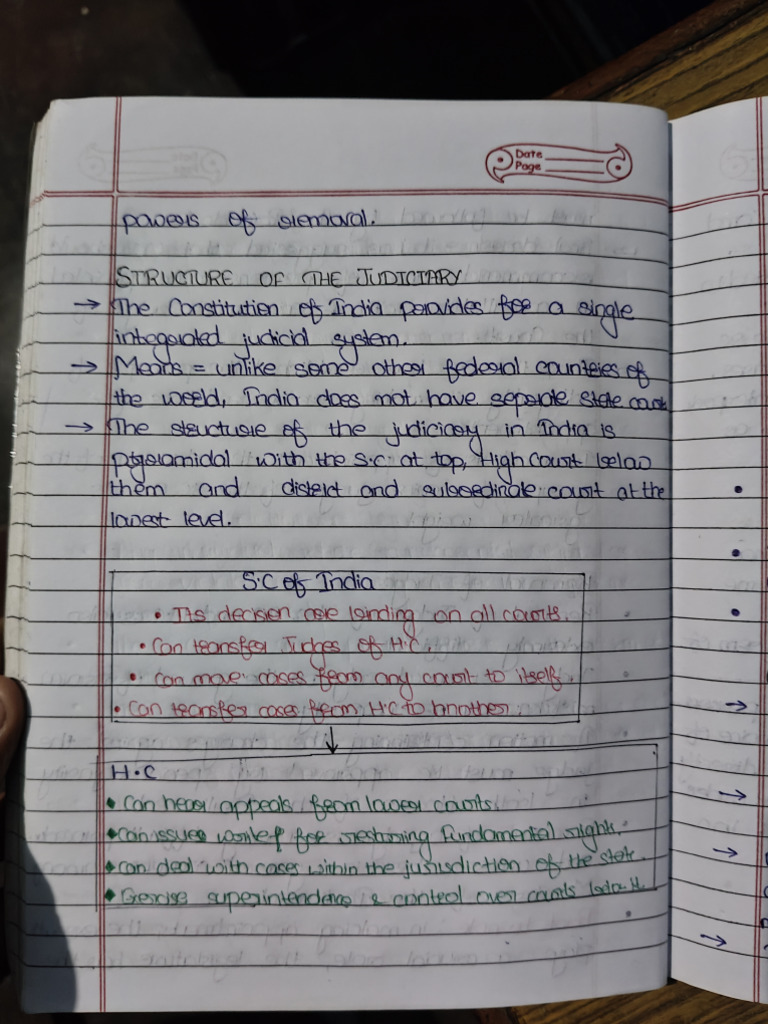 Date
Page
powers of removal.
STRUCTURE OF THE JUDICIARY
→ The Constitution of India provides for a single
integrated judicial system.
→ Means = unlike some other federal countries of
the world, India does not have separate state court
→ The structure of the judiciary in India is
pyramidal with the S.C at top, High Court below
them and district and subordinate court at the
lowest level.
S.C of India
• Its decision are binding on all courts.
• Can transfer Judges of H.C.
• Can move cases from any court to itself.
• Can transfer cases from H.C to Another.
↓
H.C
• Can hear appeals from lower courts.
• Can issues for restoring Fundamental rights.
• Can deal with cases within the jurisdiction of the state.
• Exercise superintendence & control over courts below it.